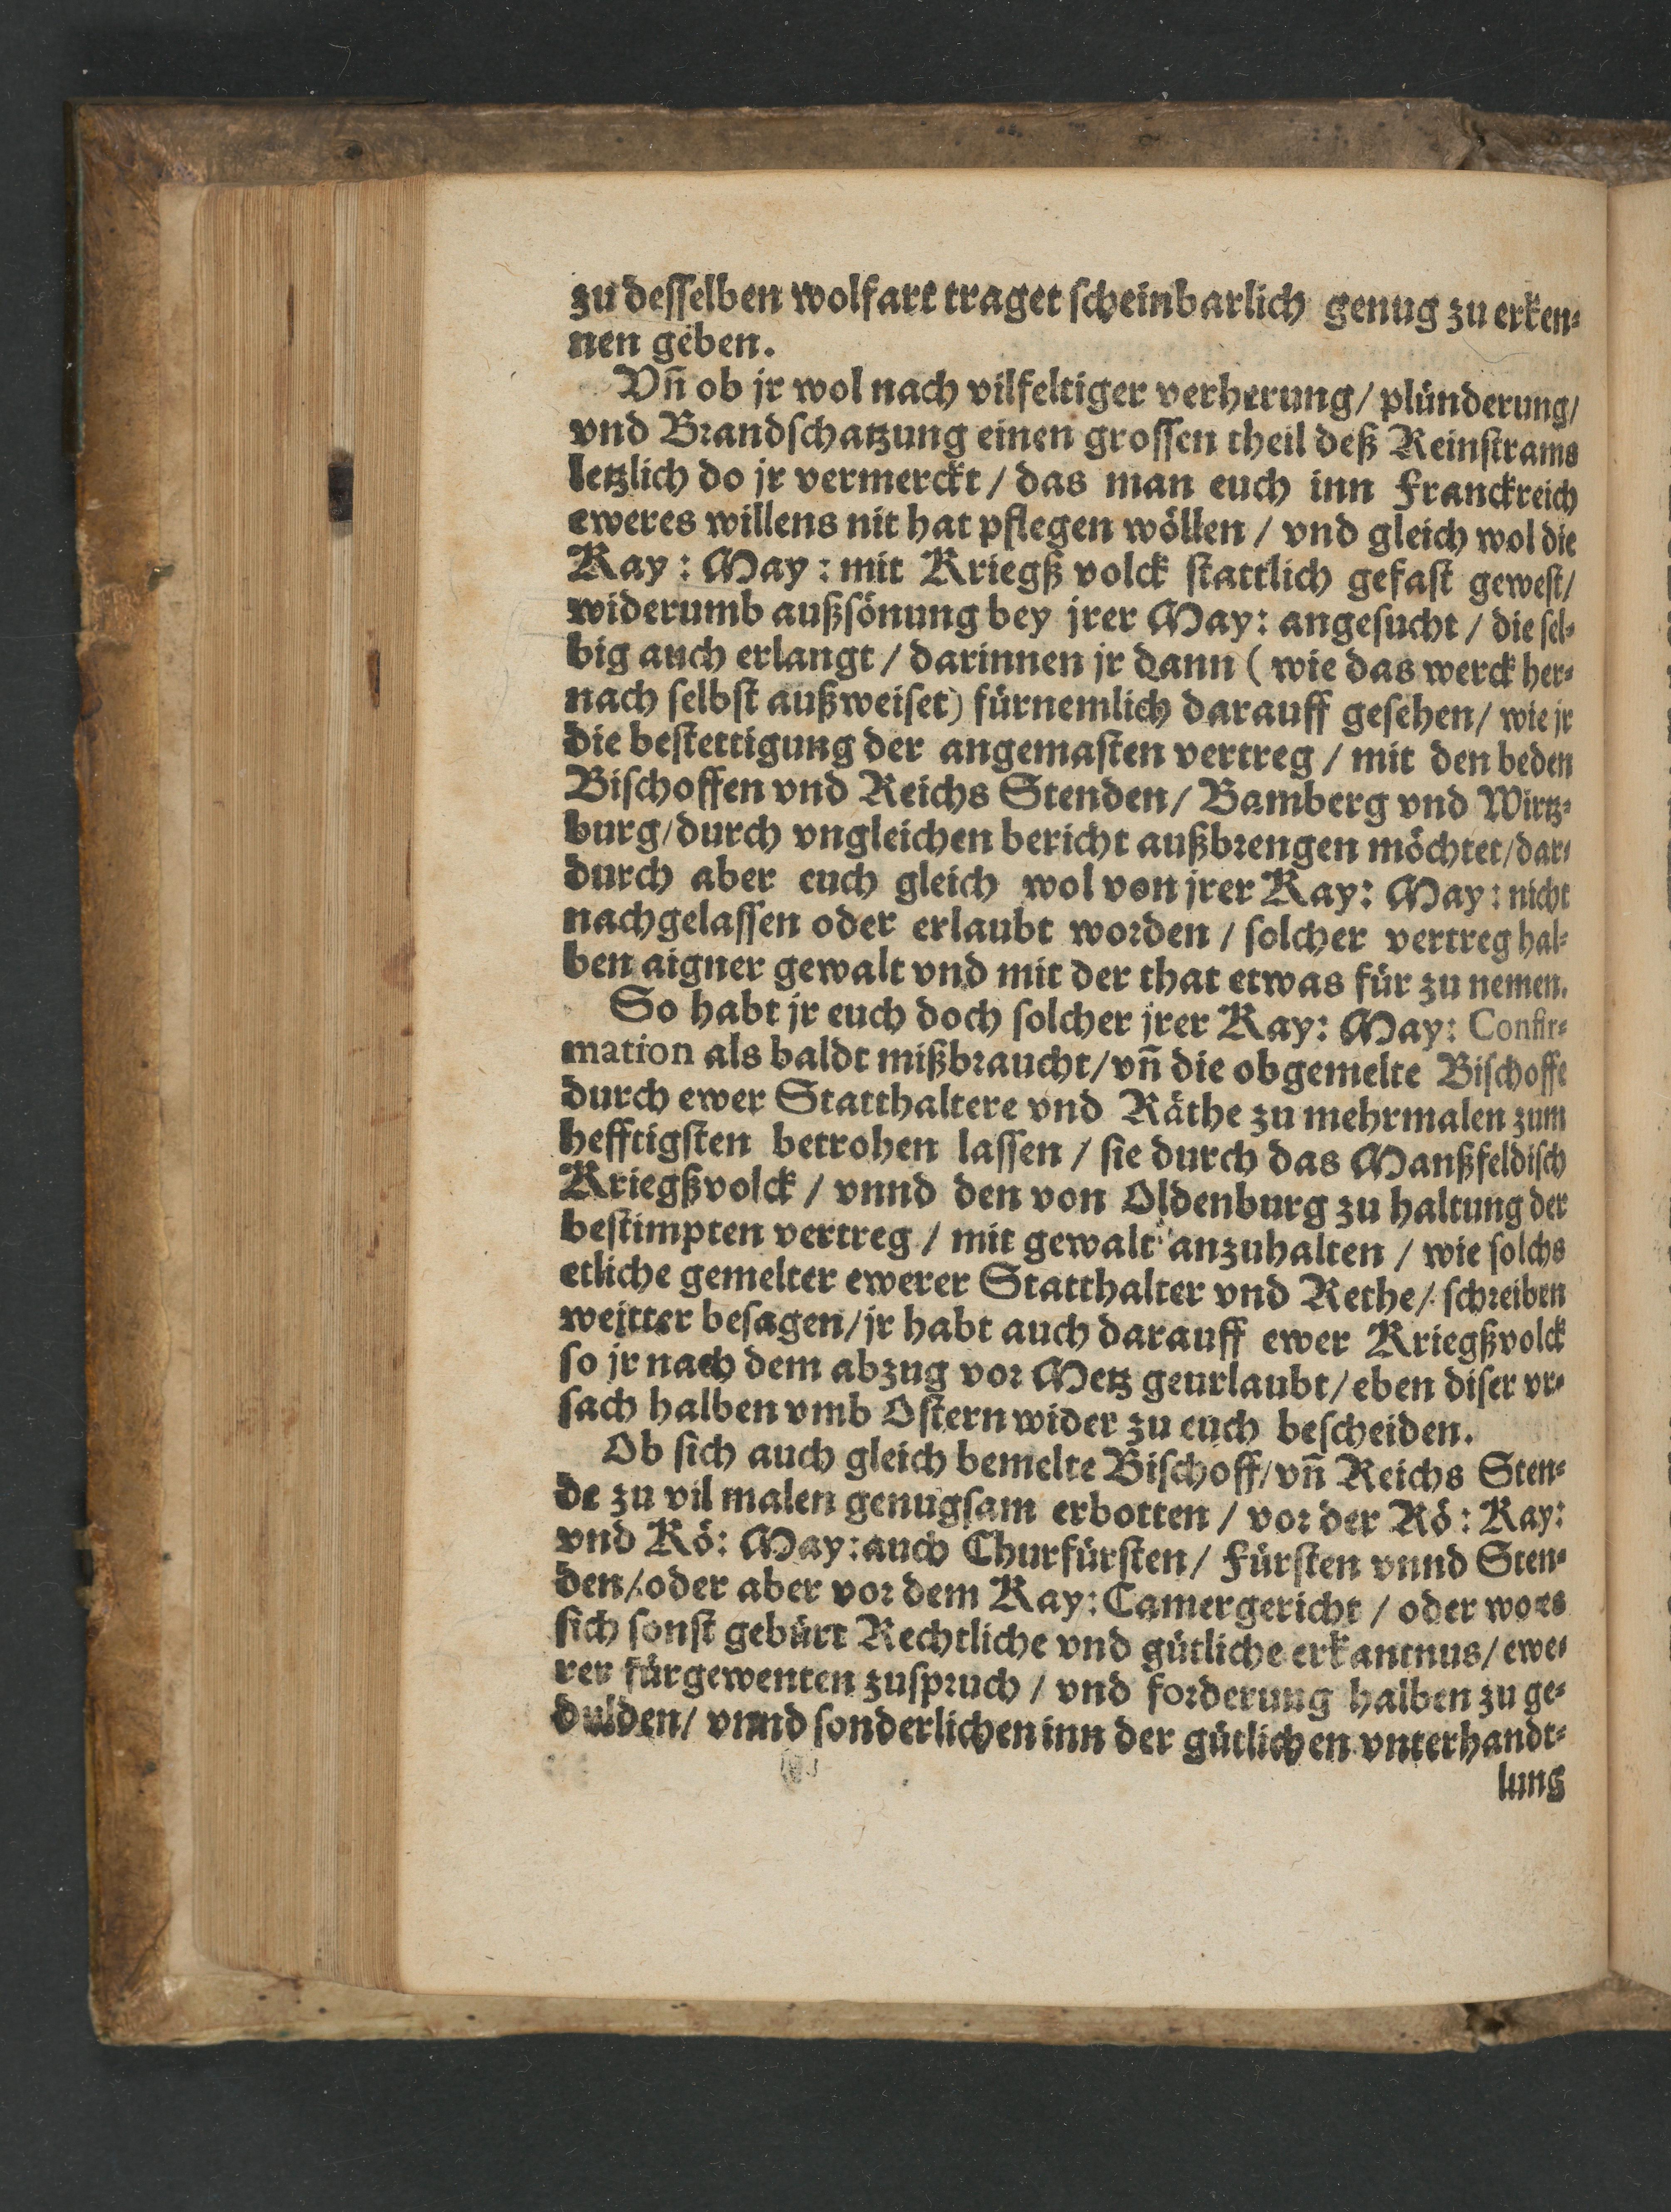 zu desselben wolfart traget scheinbarlich genug zu erken⸗
nen geben.
Vñ ob jr wol nach vilfeltiger verherung/ plünderung/
vnd Brandschatzung einen grossen theil deß Reinstrams
letzlich do jr vermerckt / das man euch inn Franckreich
eweres willens nit hat pflegen wöllen / vnd gleich wol die
Kay : May : mit Kriegß volck stattlich gefast gewest/
widerumb außsönung bey jrer May: angesucht / die sel⸗
big auch erlangt / darinnen jr dann ( wie das werck her⸗
nach selbst außweiset) fürnemlich darauff gesehen/ wie jr
die bestettigung der angemasten vertreg / mit den beden
Bischoffen vnd Reichs Stenden/ Bamberg vnd Wirtz⸗
burg/durch vngleichen bericht außbrengen möchtet/dar⸗
durch aber euch gleich wol von jrer Kay: May : nicht
nachgelassen oder erlaubt worden / solcher vertreg hal⸗
ben aigner gewalt vnd mit der that etwas für zu nemen.
So habt jr euch doch solcher jrer Kay: May: Confir⸗
mation als baldt mißbraucht/vñ die obgemelte Bischoffe
durch ewer Statthaltere vnd Räthe zu mehrmalen zum
hefftigsten betrohen lassen / sie durch das Manßfeldisch
Kriegßvolck / vnnd den von Oldenburg zu haltung der
bestimpten vertreg / mit gewalt anzuhalten / wie solchs
etliche gemelter ewerer Statthalter vnd Rethe/ schreiben
weitter besagen/jr habt auch darauff ewer Kriegßvolck
so jr nach dem abzug vor Metz geurlaubt/eben diser vr⸗
sach halben vmb Ostern wider zu euch bescheiden.
Ob sich auch gleich bemelte Bischoff/vñ Reichs Sten⸗
de zu vil malen genugsam erbotten / vor der Rö : Kay:
vnd Rö: May:auch Churfürsten/ Fürsten vnnd Sten⸗
den/oder aber vor dem Kay:Camergericht / oder wo es
sich sonst gebürt Rechtliche vnd gütliche erkantnus/ ewe⸗
rer fürgewenten zuspruch / vnd forderung halben zu ge⸗
dulden/ vnnd sonderlichen inn der gütlichen vnterhandt⸗
lung